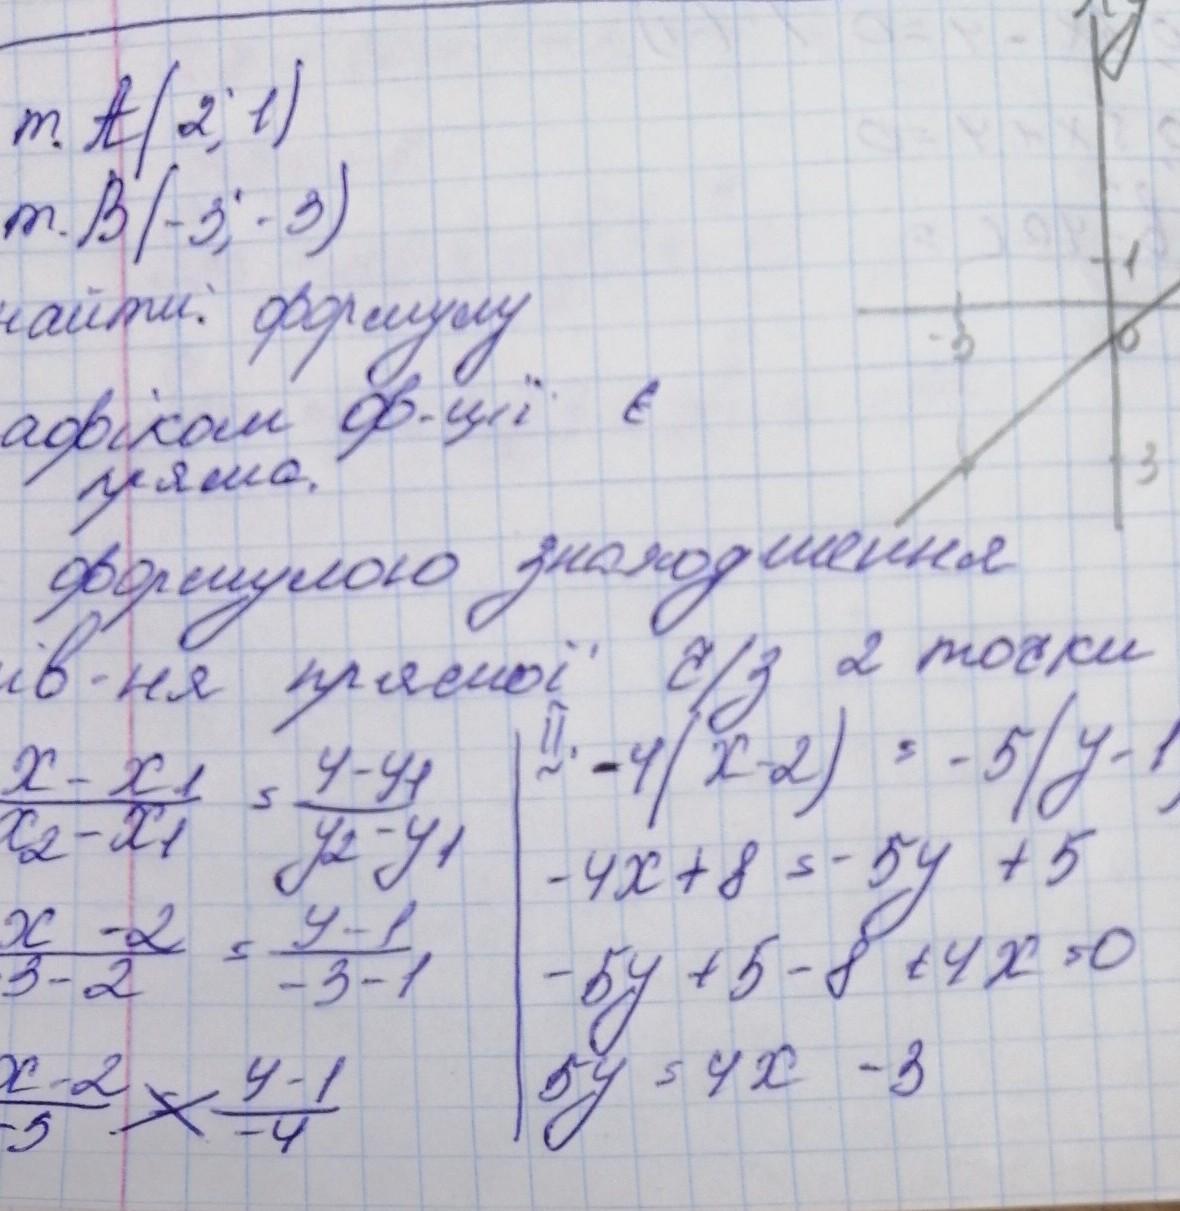 т. А(2; 1)
т. В(-3; -3)
найти: формулу
афіком ф-ції є
пряма.
формулою знаходження
ів-ня прямої ч/з 2 точки
x - x1 / x2 - x1 = y - y1 / y2 - y1
x - 2 / -3 - 2 = y - 1 / -3 - 1
x - 2 / -5 = y - 1 / -4
II. -4(x-2) = -5(y-1)
-4x + 8 = -5y + 5
-5y + 5 - 8 + 4x = 0
5y = 4x - 3
y
1
-3
0
3